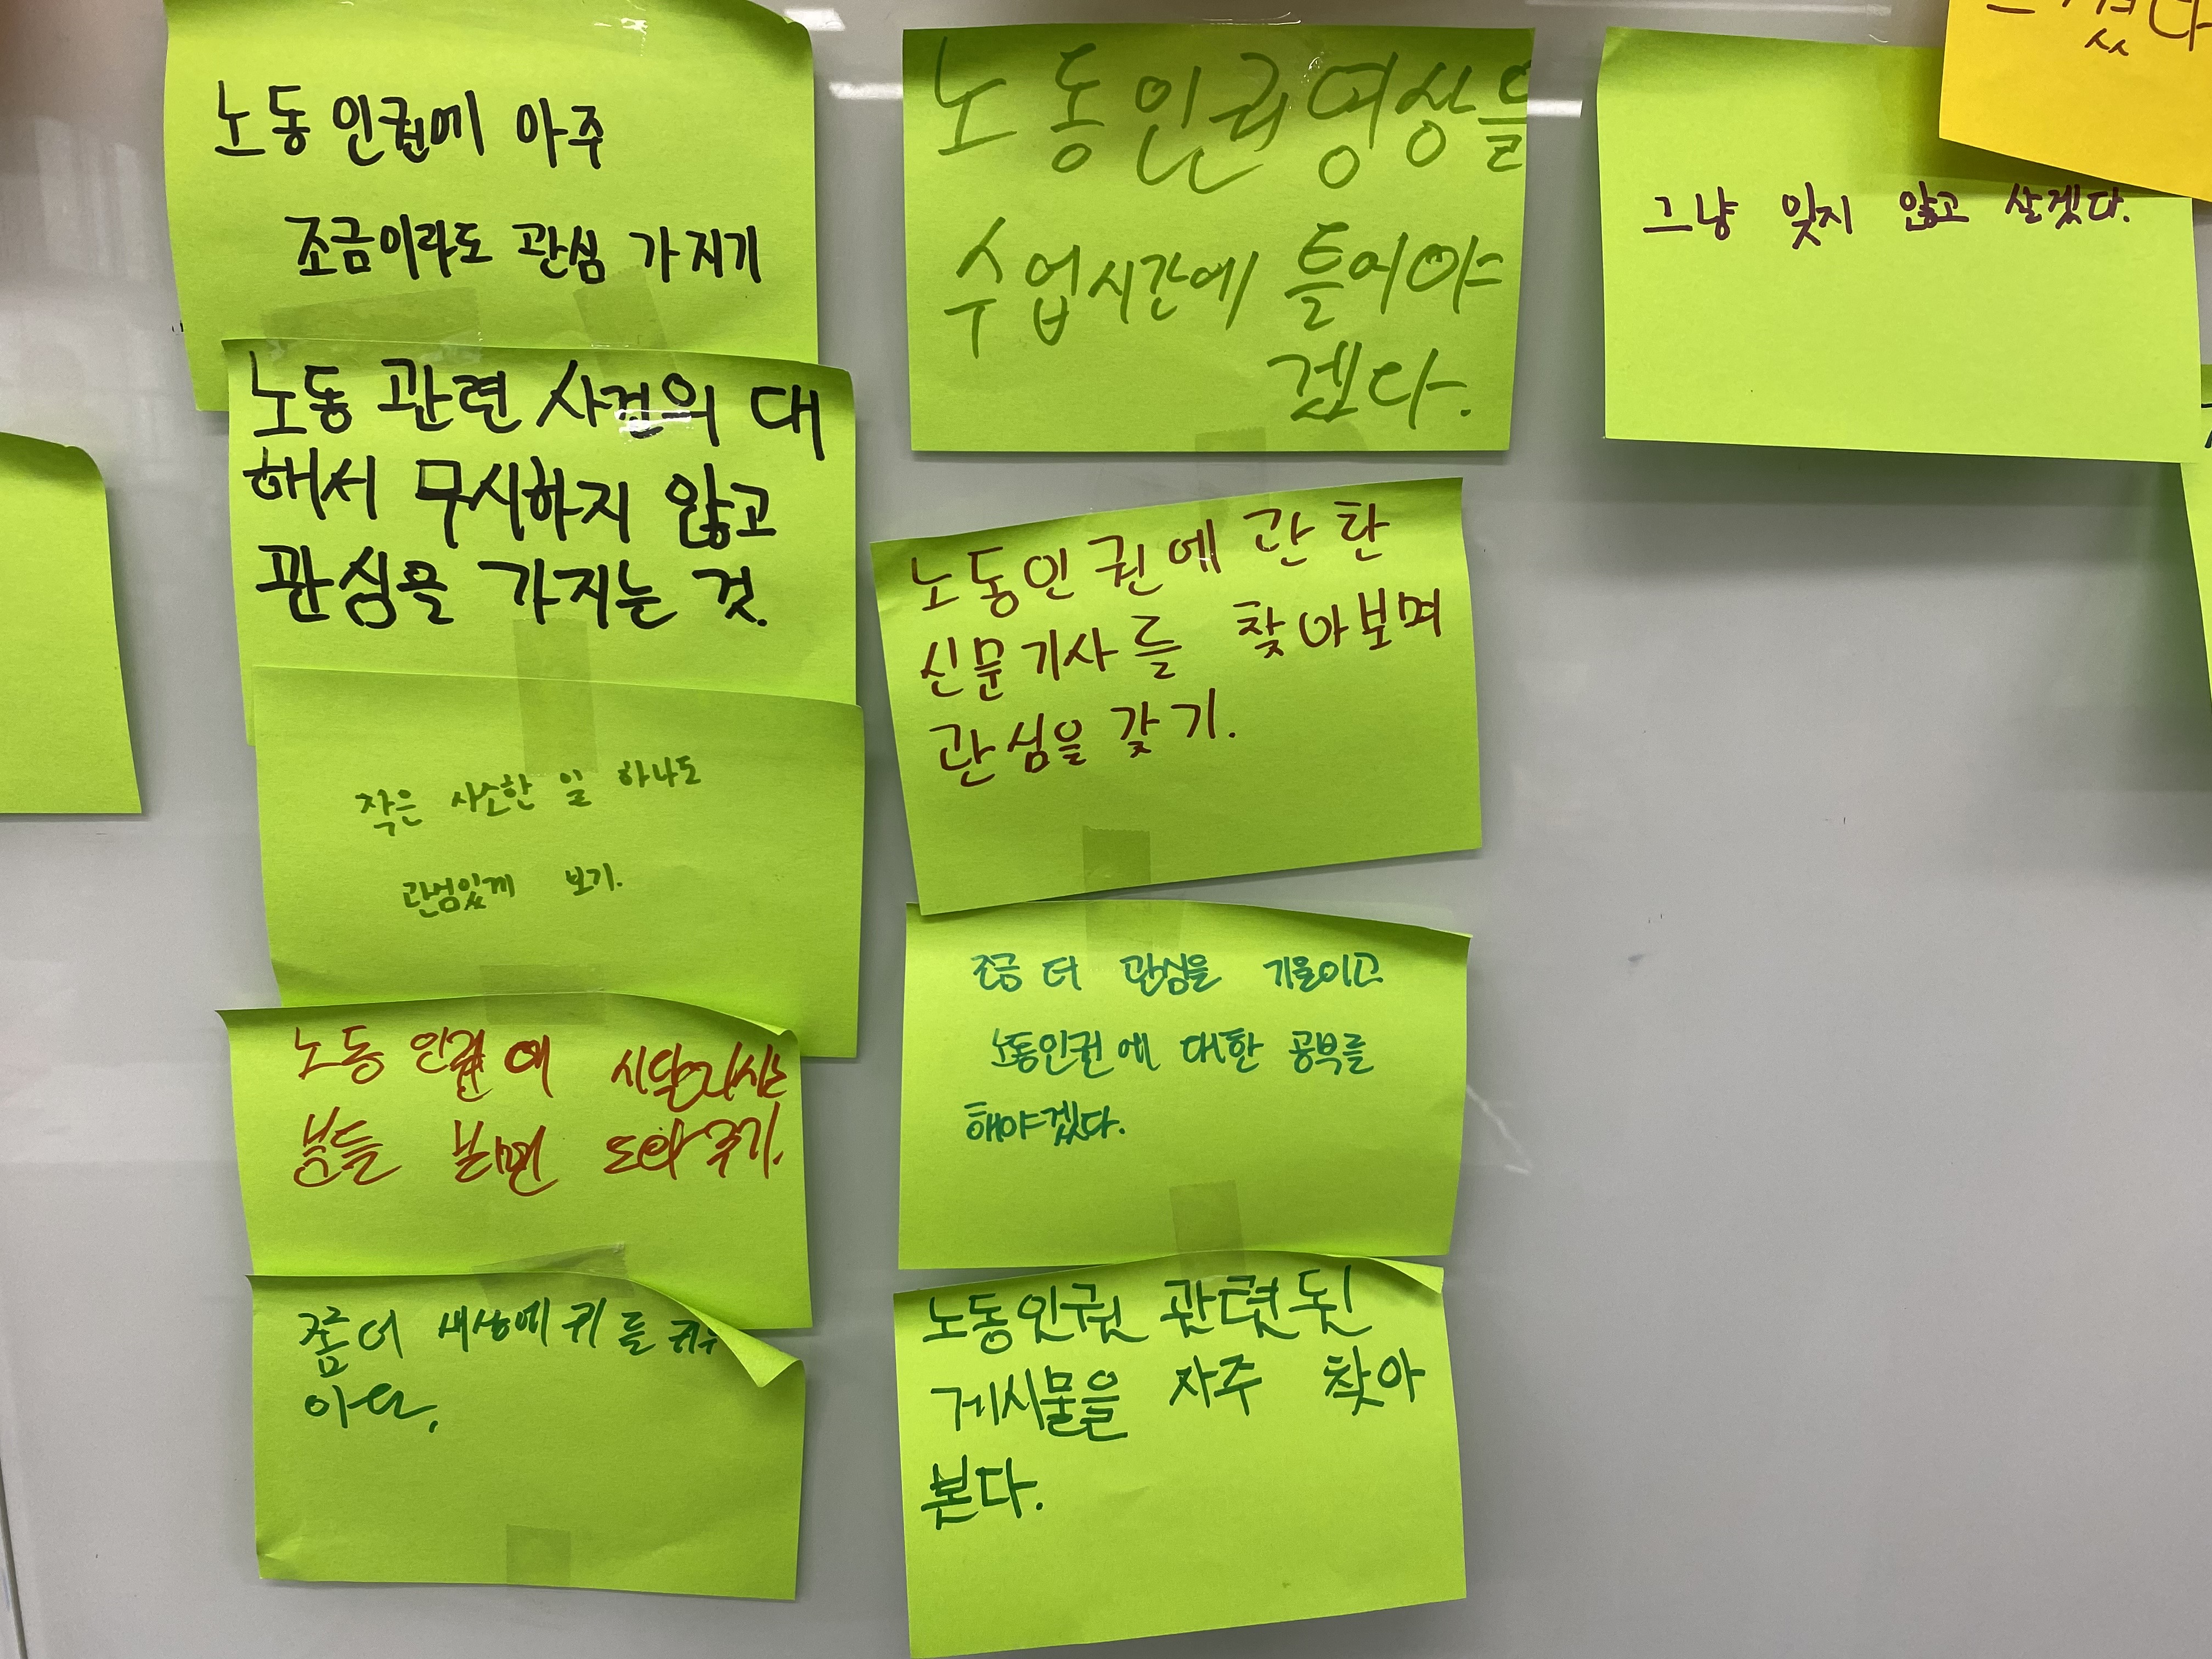 노동인권에 아주
조금이라도 관심 가지기
노동 관련 사건의 대
해서 무시하지 않고
관심을 가지는 것.
작은 사소한 일 하나도
관심있게 보기.
노동 인권에 시달리시는
분들 보면 도와주기.
좀 더 세상에 귀를
노동인권영상을
수업시간에 틀어야
겠다.
노동인권에 관한
신문기사를 찾아보며
관심을 갖기.
조금 더 관심을 기울이고
노동인권에 대한 공부를
해야겠다.
노동인권 관련된
게시물을 자주 찾아
본다.
그냥 잊지 않고 살겠다.